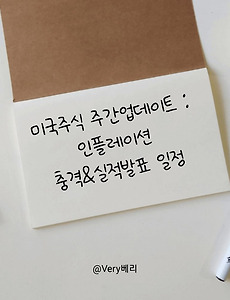 미국주식 주간업데이트 :
인플레이션
충격&실적발표 일정
@Very베리